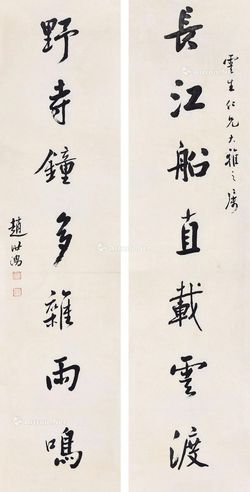 雲生仁兄大雅之屬
長江船直載雲渡
野寺鐘多雜雨鳴
趙世鴻